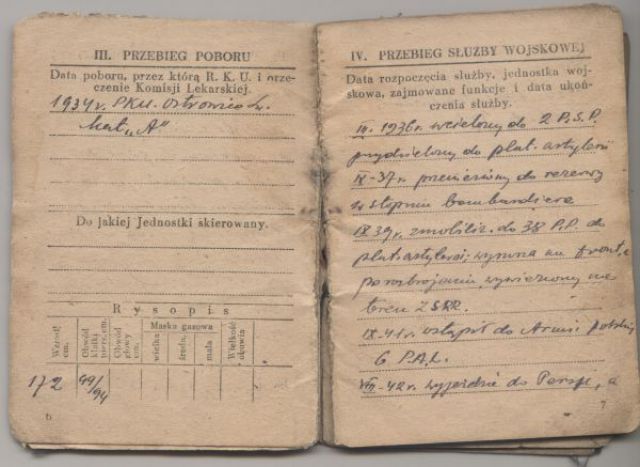 III. PRZEBIEG POBORU
Data poboru, przez którą R. K. U. i orze-
czenie Komisji Lekarskiej.
1934 r. PKU. Ostrowiec
kat. „A"
Do jakiej Jednostki skierowany.
Rysopis
Wzrost cm.
Obwód klatki piers. cm.
Obwód głowy cm.
Maska gazowa
wielka
średn.
mała
Wielkość obuwia
172
99/94
6
IV. PRZEBIEG SŁUŻBY WOJSKOWEJ
Data rozpoczęcia służby, jednostka woj-
skowa, zajmowane funkcje i data ukoń-
czenia służby.
1936 r. wcielony do 2 P.S.P.
przydzielony do plut. artylerii
IX-37 r. przeniesiony do rezerwy
w stopniu bombardiera
IX 39 r. zmobiliz. do 38 P.P. do
plut. artylerii; wyrusza na front, a
po rozbrojeniu wywieziony na
teren ZSRR.
IX-41 r. wstąpił do Armii polskiej
6 P.A.L.
VIII-42 r. wyjeżdża do Persji, a
7